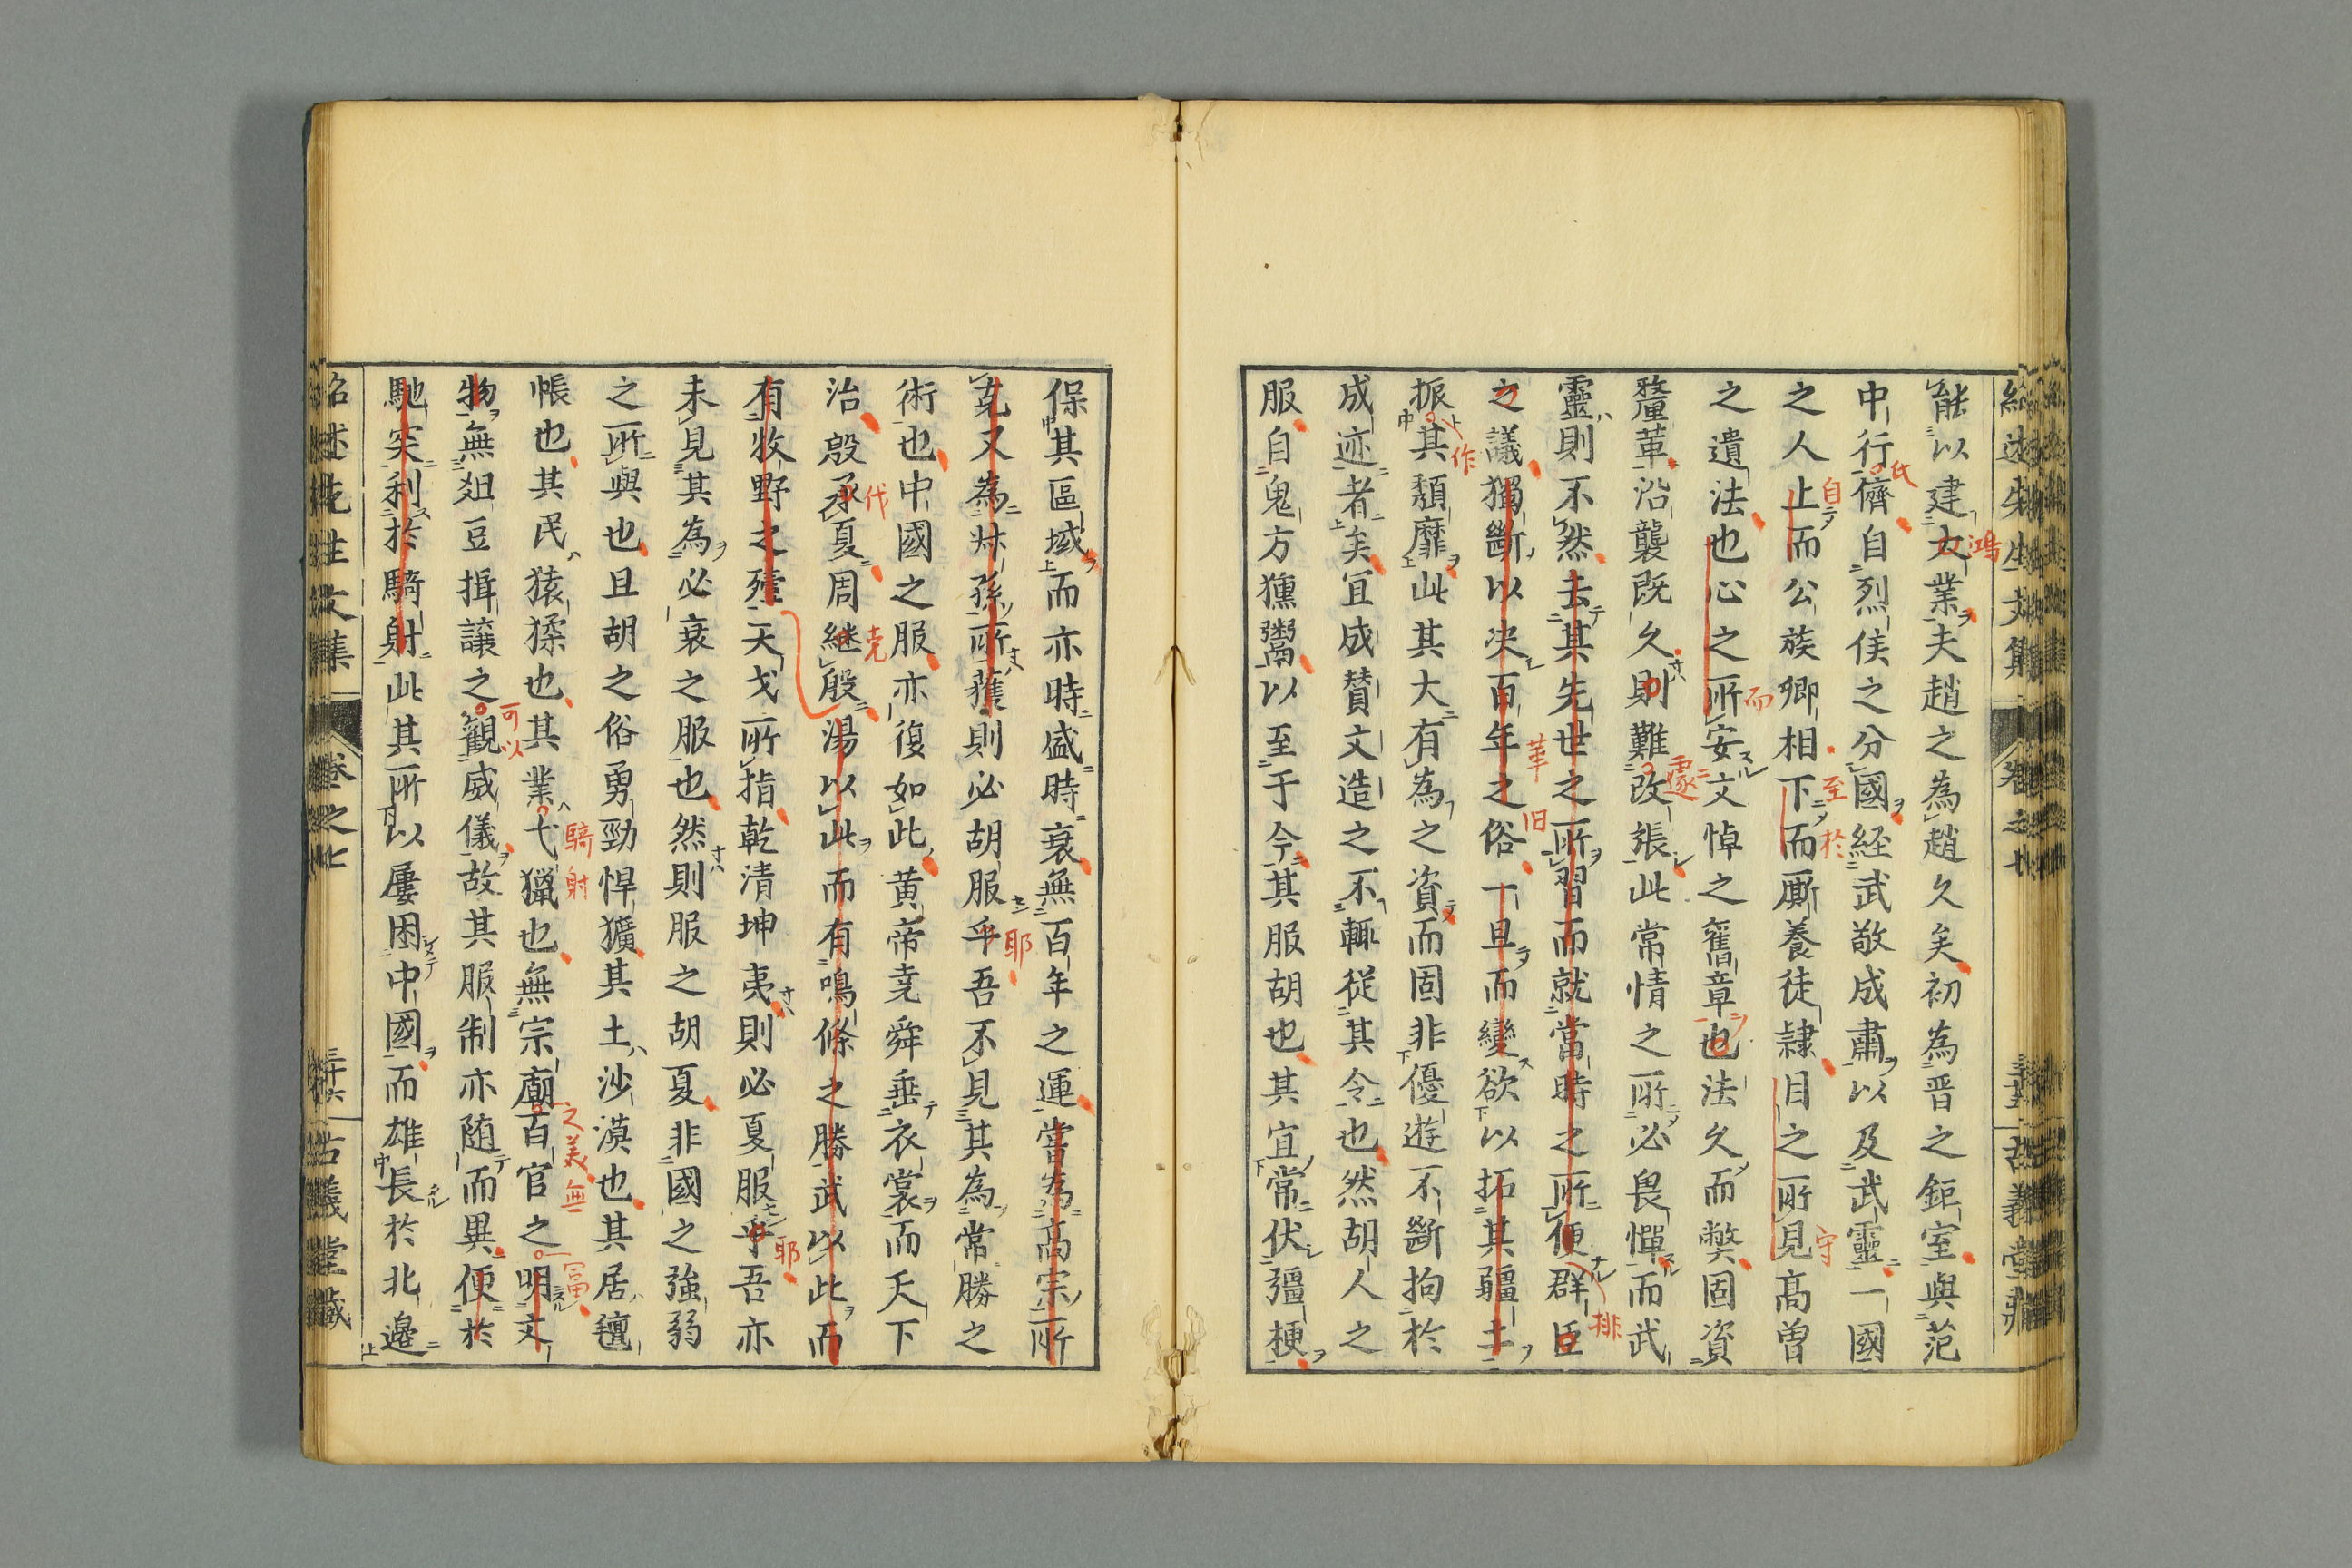 能以建大業夫趙之為趙久矣初為晋之鉅室與范
鴻
中行儕自烈侯之分國経武敬成肅以及武靈一國
氏
之人上而公族卿相下而厮養徒隷目之所見髙曽
自 至於 守
之遺法也心之所安文悼之舊章也法久而弊固資
而
釐革沿襲既久則難改張此常情之所必畏憚而武
遽
靈則不然去其先世之所習而就當時之所便群臣
排
之議獨斷以决百年之俗一旦而變欲以拓其疆土
革旧
振其頽靡此其大有為之資而固非優遊不斷拘於
作
成迹者矣冝成賛文造之不輙従其令也然胡人之
服自鬼方獯鬻以至于今其服胡也其宜常伏彊梗
保其區域而亦時盛時衰無百年之運當為髙宗所
克又為林孫所獲則必胡服乎吾不見其為常勝之
耶
術也中國之服亦復如此黄帝尭舜垂衣裳而天下
治殷承夏周継殷湯以此而有鳴條之勝武以此而
代 克
有牧野之殪天戈所指乾清坤夷則必夏服乎吾亦
耶
未見其為必衰之服也然則服之胡夏非國之強弱
之所與也且胡之俗勇勁悍獷其土沙漠也其居氊
帳也其民猿猱也其業弋獵也無宗廟百官之明文
騎射 之美無 富
物無俎豆揖譲之観威儀故其服制亦随而異便於
可以
馳突利於騎射此其所以屢困中國而雄長於北邉
紹述先生文集 卷之七 古義堂藏